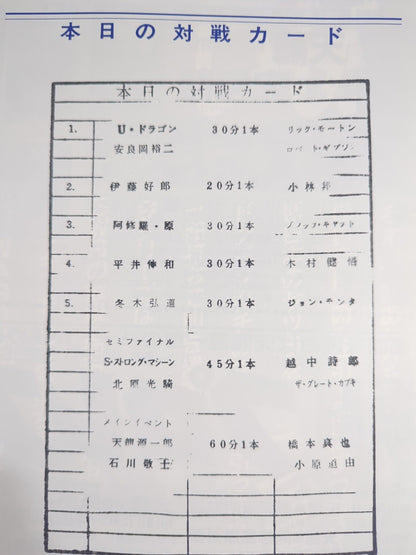 本日の対戦カード
本日の対戦カード
1. U・ドラゴン 30分1本 リック・モートン
安良岡裕二 ロバート・ギブソン
2. 伊藤好郎 20分1本 小林
3. 阿修羅・原 30分1本
4. 平井伸和 30分1本 木村健悟
5. 冬木弘道 30分1本 ジョン・テンタ
セミファイナル
S・ストロング・マシーン 45分1本 越中詩郎
北原光騎 ザ・グレート・カブキ
メインイベント
天龍源一郎 60分1本 橋本真也
石川敬士 小原道由